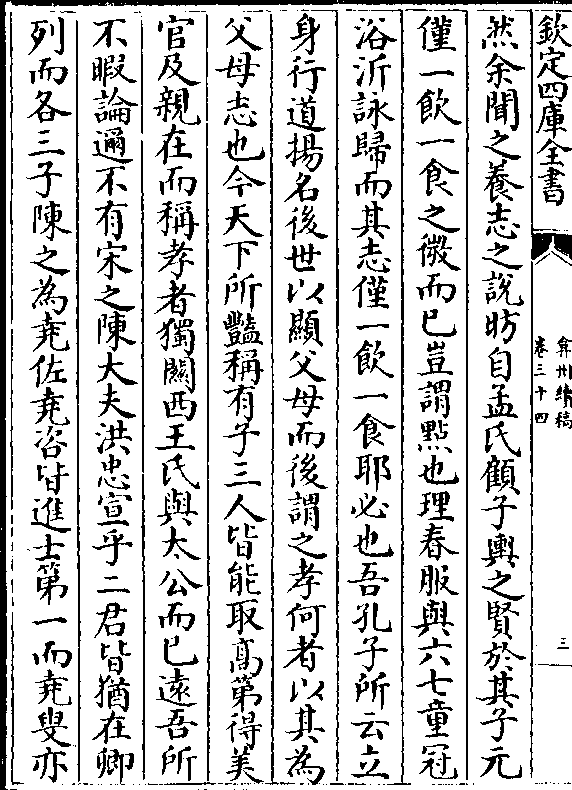 欽定四庫全書
弇州續稿
卷三十四
三
然余聞之養志之說昉自孟氏顧子輿之賢於其子元
僅一飲一食之微而已豈謂點也理春服與六七童冠
浴沂詠歸而其志僅一飲一食耶必也吾孔子所云立
身行道揚名後世以顯父母而後謂之孝何者以其為
父母志也今天下所豔稱有子三人皆能取髙第得美
官及親在而稱孝者獨關西王氏與太公而已遠吾所
不暇論邇不有宋之陳大夫洪忠宣乎二君皆猶在卿
列而各三子陳之為堯佐堯咨皆進士第一而堯叟亦